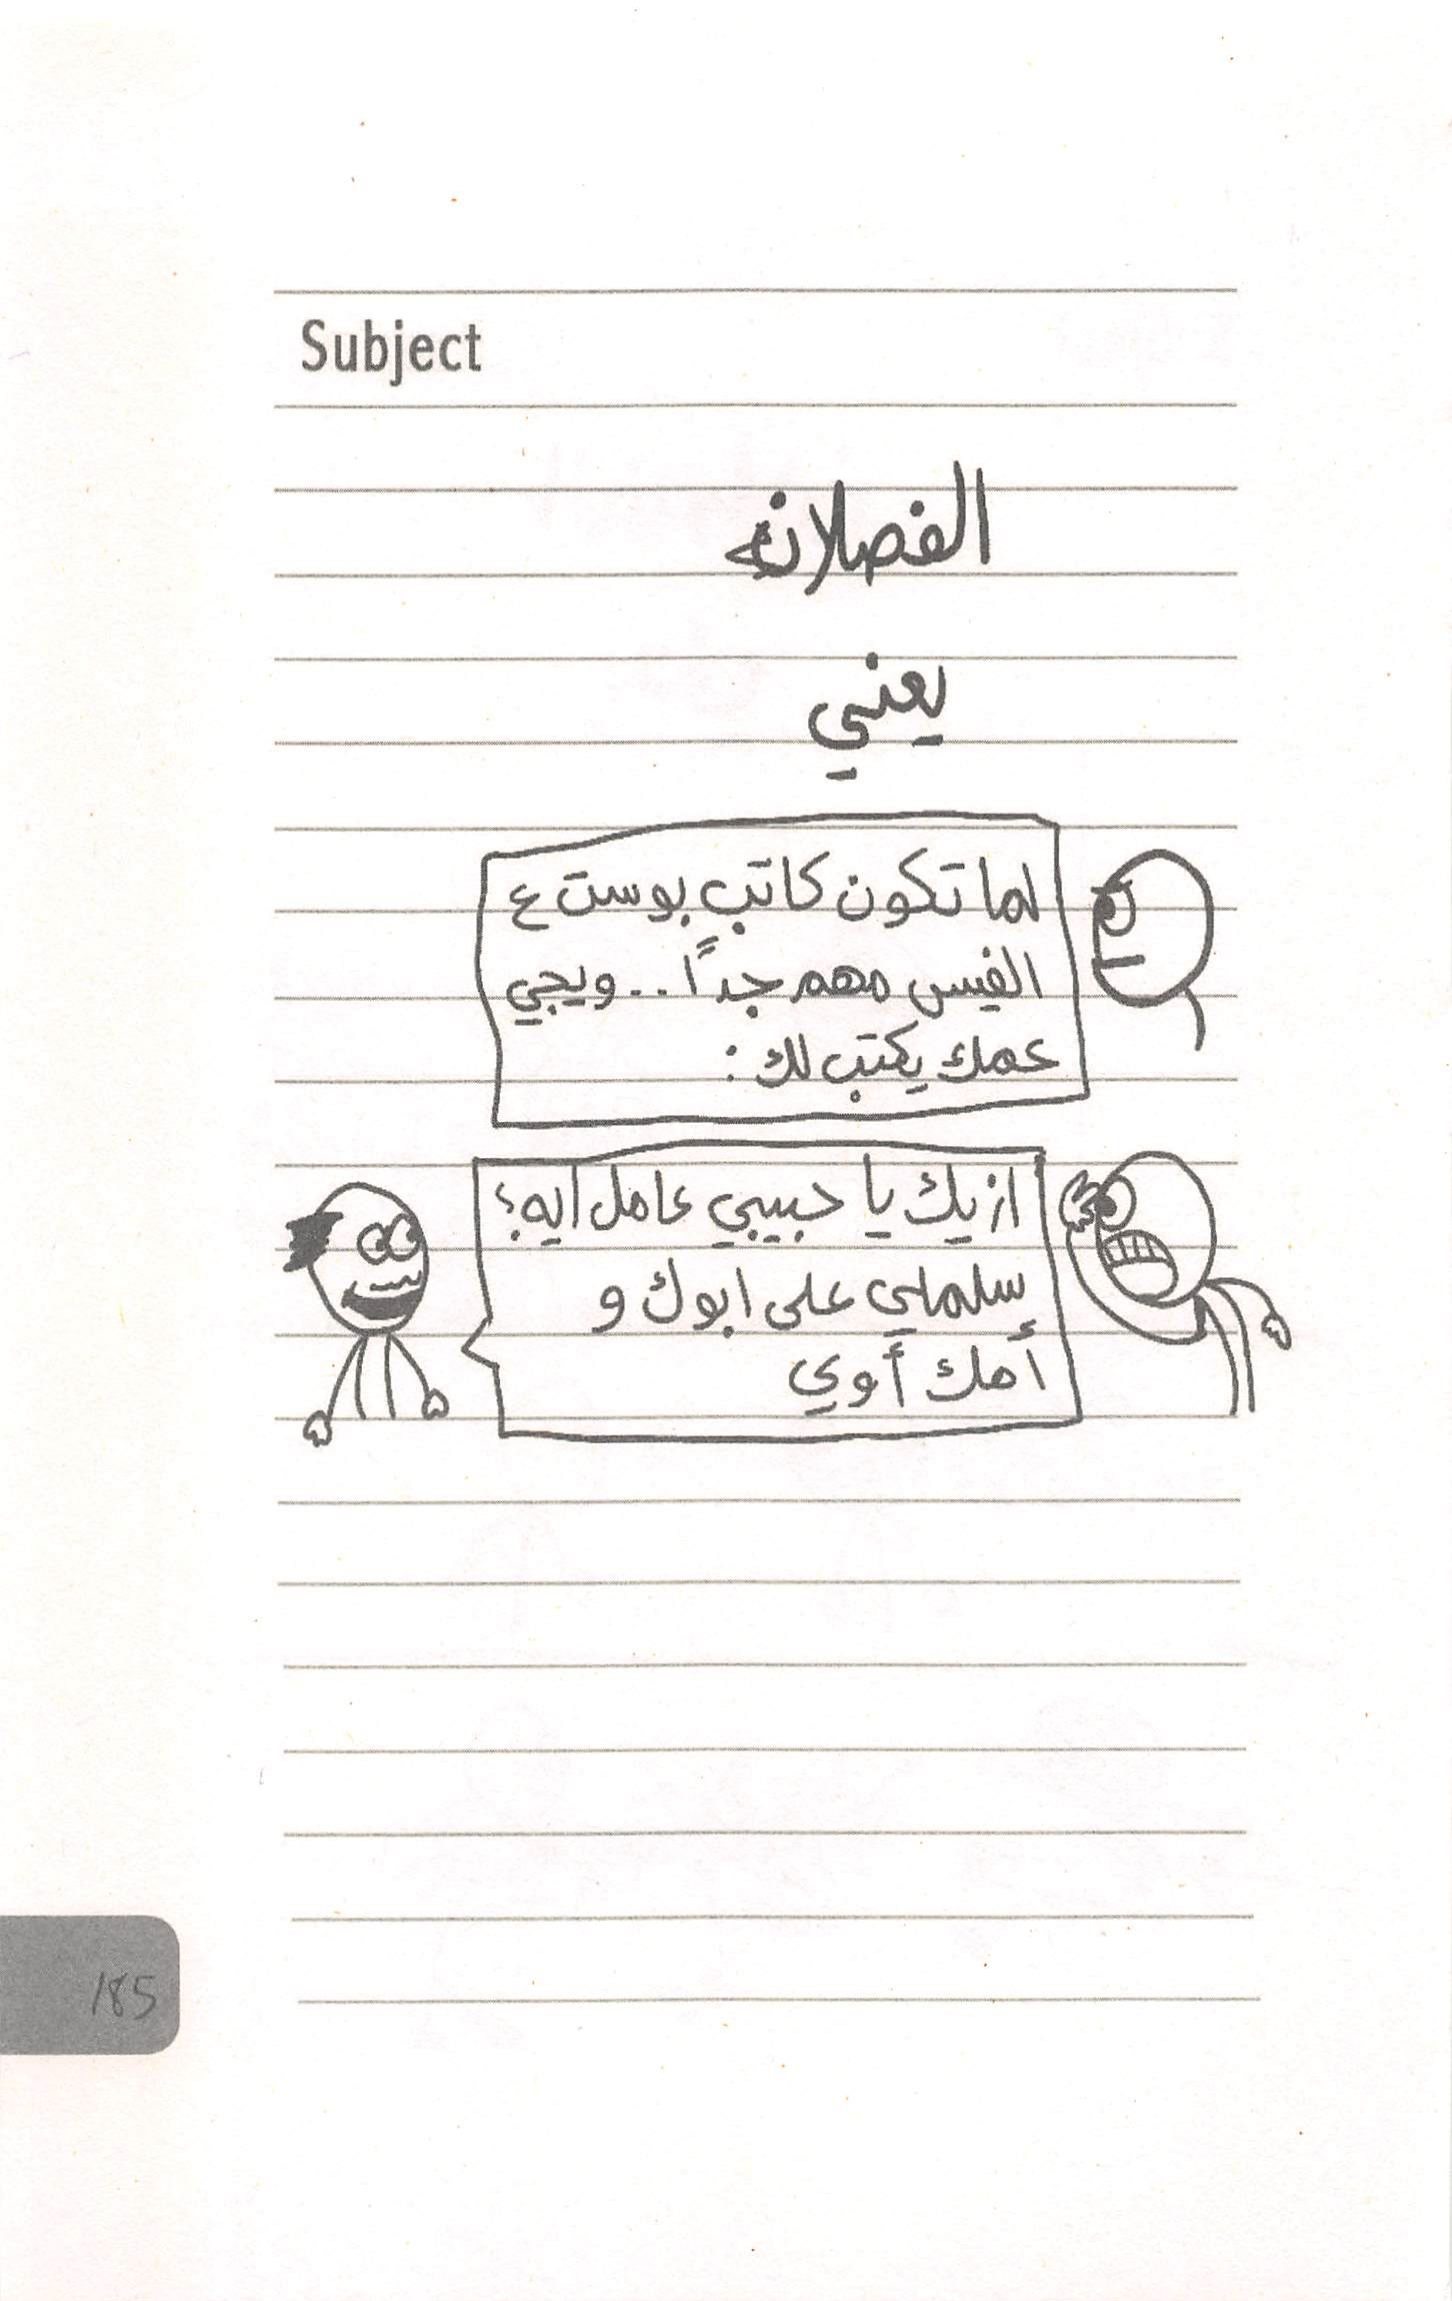 Subject
الفصلانه
يعني
لما تكون كاتب بوست ع
الفيس مهم جداً .. ويجي
عمك يكتب لك :
ازيك يا حبيبي عامل ايه؟
سلملي على ابوك و
أمك أوي
185